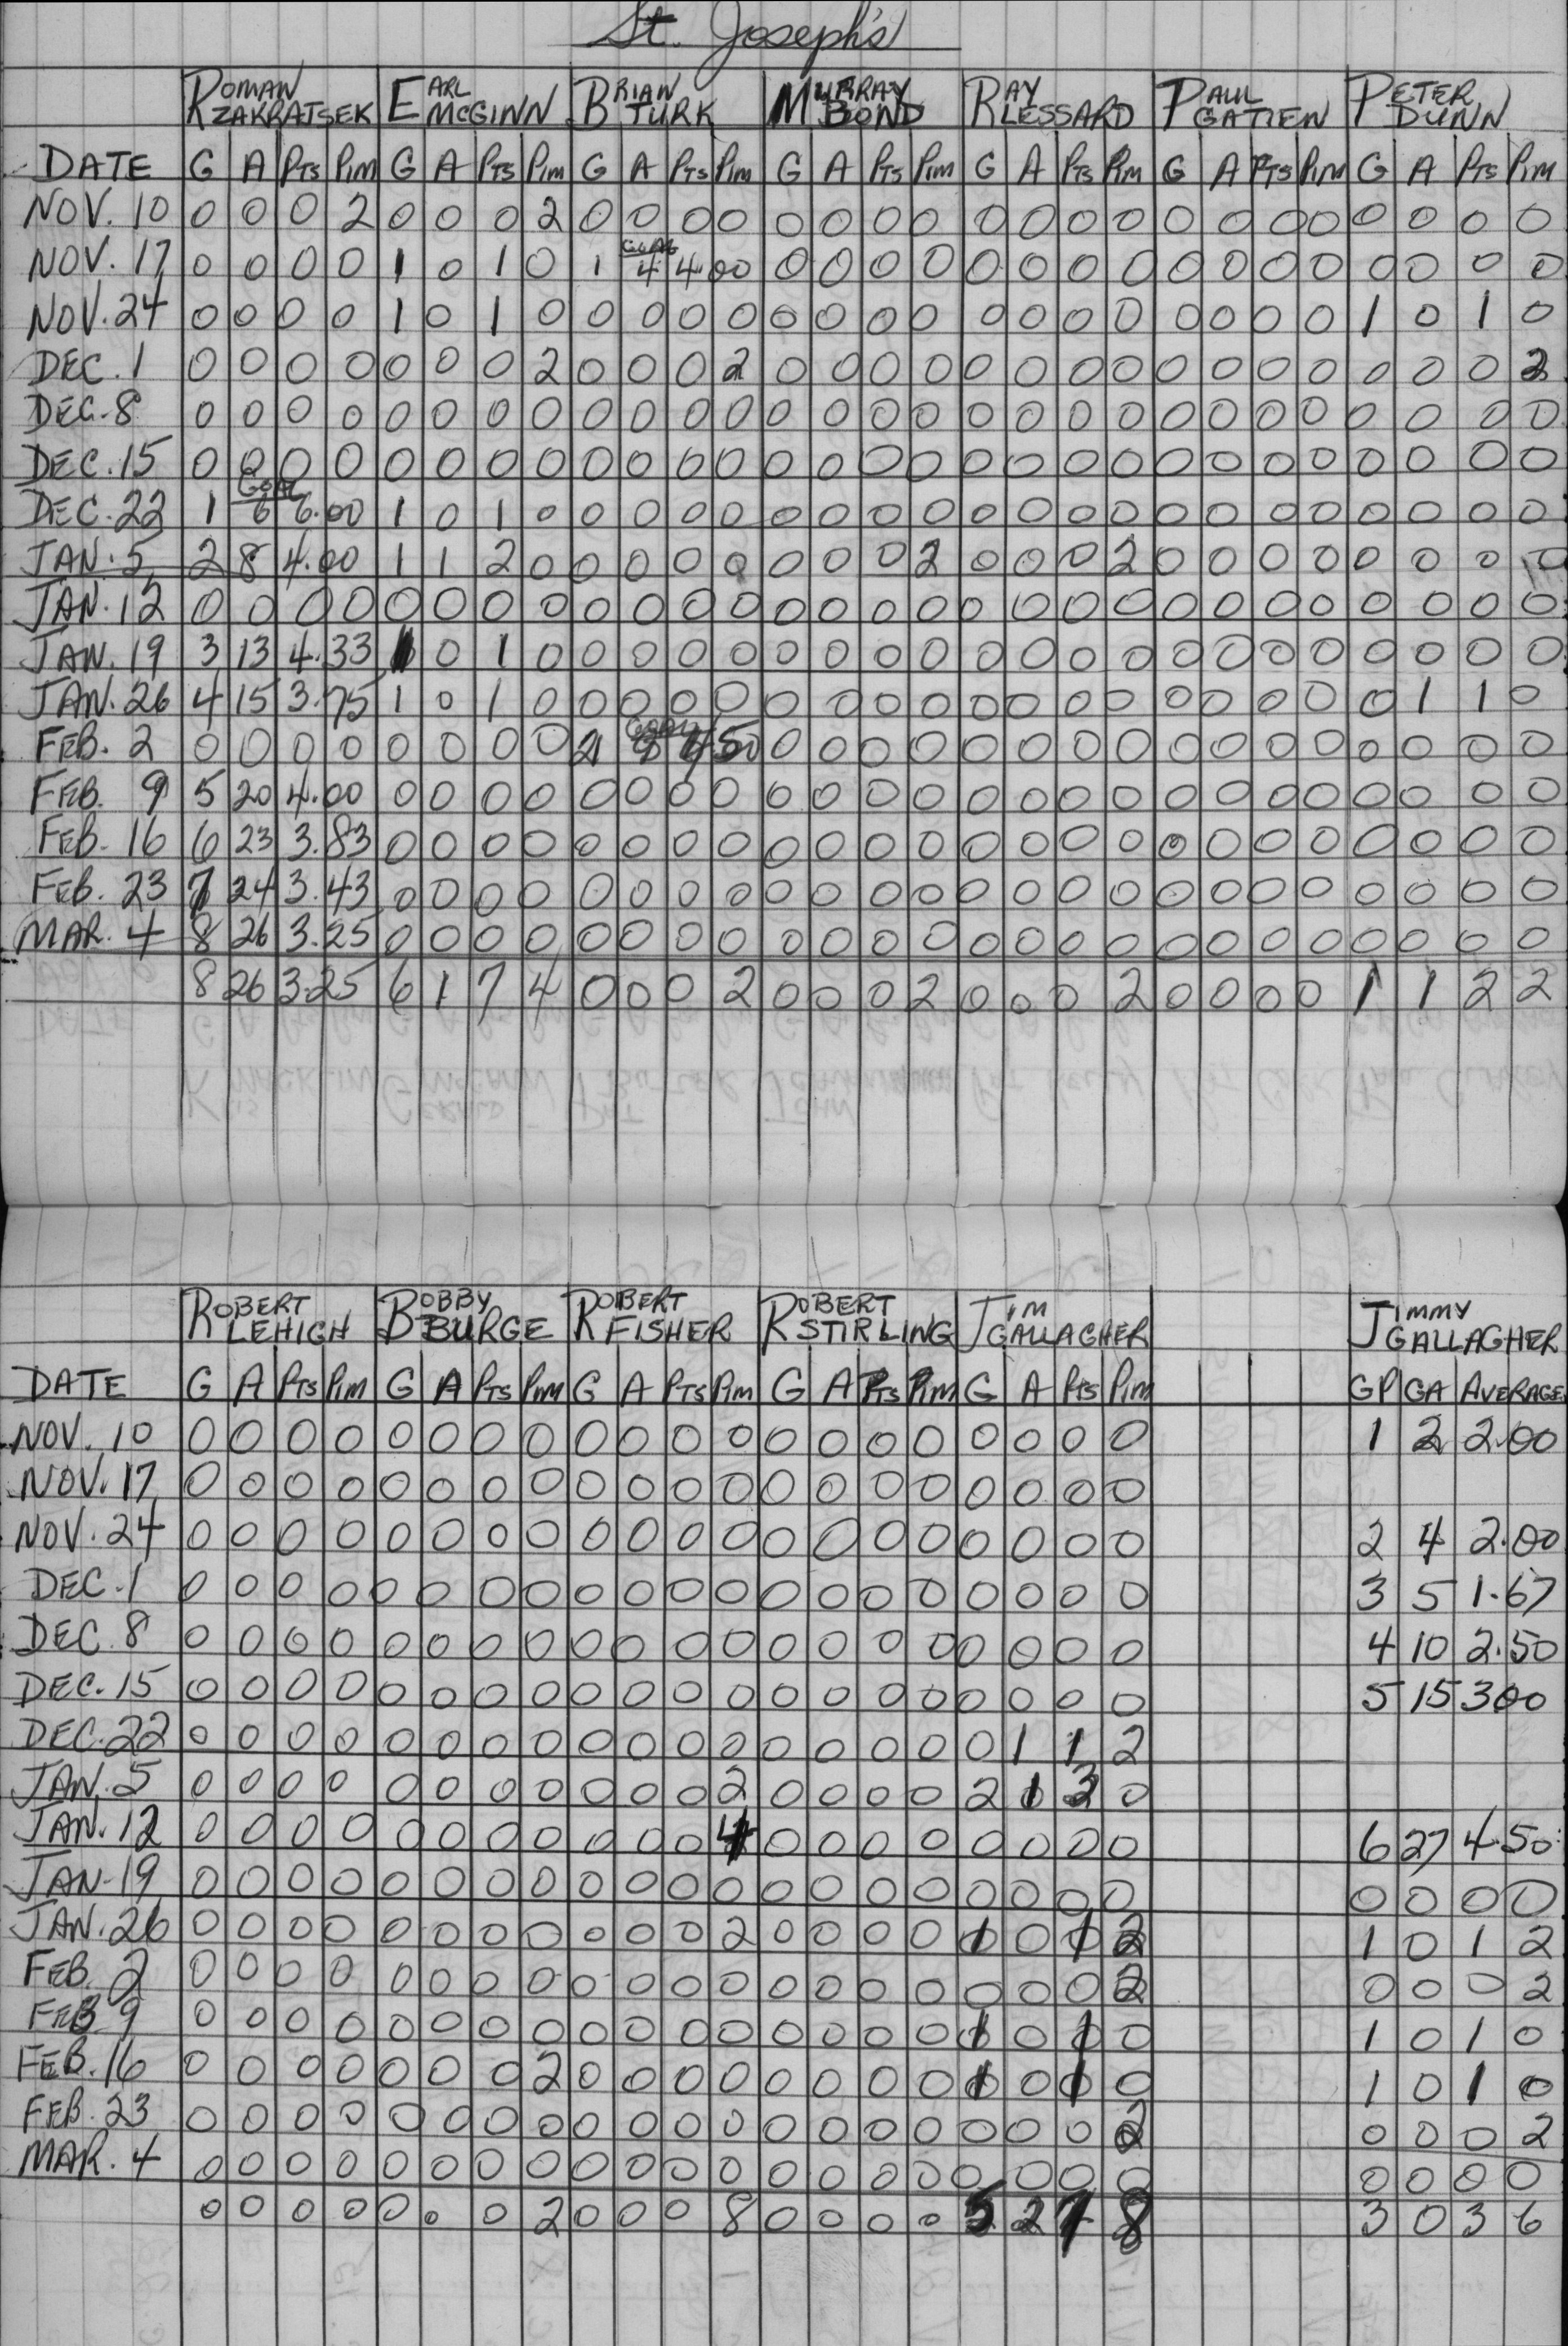 St. Joseph's
ROMAN ZAKRATSEK EARL McGINN BRIAN TURK MURRAY BOND RAY LESSARD PAUL GATIEN PETER DUNN
DATE G A PTS PIM G A PTS PIM G A PTS PIM G A PTS PIM G A PTS PIM G A PTS PIM G A PTS PIM
NOV. 10 0 0 0 2 0 0 0 2 0 0 0 0 0 0 0 0 0 0 0 0 0 0 0 0 0 0 0 0
NOV. 17 0 0 0 0 1 0 1 0 1 GOAL 4 4.00 0 0 0 0 0 0 0 0 0 0 0 0 0 0 0 0
NOV. 24 0 0 0 0 1 0 1 0 0 0 0 0 0 0 0 0 0 0 0 0 0 0 0 0 1 0 1 0
DEC. 1 0 0 0 0 0 0 0 2 0 0 0 2 0 0 0 0 0 0 0 0 0 0 0 0 0 0 0 2
DEC. 8 0 0 0 0 0 0 0 0 0 0 0 0 0 0 0 0 0 0 0 0 0 0 0 0 0 0 0 0
DEC. 15 0 0 0 0 0 0 0 0 0 0 0 0 0 0 0 0 0 0 0 0 0 0 0 0 0 0 0 0
DEC. 22 1 GOAL 6 6.00 1 0 1 0 0 0 0 0 0 0 0 0 0 0 0 0 0 0 0 0 0 0 0 0
JAN. 5 2 8 4.00 1 1 2 0 0 0 0 0 0 0 0 2 0 0 0 2 0 0 0 0 0 0 0 0
JAN. 12 0 0 0 0 0 0 0 0 0 0 0 0 0 0 0 0 0 0 0 0 0 0 0 0 0 0 0 0
JAN. 19 3 13 4.33 1 0 1 0 0 0 0 0 0 0 0 0 0 0 0 0 0 0 0 0 0 0 0 0
JAN. 26 4 15 3.75 1 0 1 0 0 0 0 0 0 0 0 0 0 0 0 0 0 0 0 0 0 1 1 0
FEB. 2 0 0 0 0 0 0 0 0 2 GOAL 50 0 0 0 0 0 0 0 0 0 0 0 0 0 0 0 0
FEB. 9 5 20 4.00 0 0 0 0 0 0 0 0 0 0 0 0 0 0 0 0 0 0 0 0 0 0 0 0
FEB. 16 6 23 3.83 0 0 0 0 0 0 0 0 0 0 0 0 0 0 0 0 0 0 0 0 0 0 0 0
FEB. 23 7 24 3.43 0 0 0 0 0 0 0 0 0 0 0 0 0 0 0 0 0 0 0 0 0 0 0 0
MAR. 4 8 26 3.25 0 0 0 0 0 0 0 0 0 0 0 0 0 0 0 0 0 0 0 0 0 0 0 0
8 26 3.25 6 1 7 4 0 0 0 2 0 0 0 2 0 0 0 2 0 0 0 0 1 1 2 2
ROBERT LEHIGH BOBBY BURGE ROBERT FISHER ROBERT STIRLING JIM GALLAGHER JIMMY GALLAGHER
DATE G A PTS PIM G A PTS PIM G A PTS PIM G A PTS PIM G A PTS PIM GP GA AVERAGE
NOV. 10 0 0 0 0 0 0 0 0 0 0 0 0 0 0 0 0 0 0 0 0 1 2 2.00
NOV. 17 0 0 0 0 0 0 0 0 0 0 0 0 0 0 0 0 0 0 0 0
NOV. 24 0 0 0 0 0 0 0 0 0 0 0 0 0 0 0 0 0 0 0 0 2 4 2.00
DEC. 1 0 0 0 0 0 0 0 0 0 0 0 0 0 0 0 0 0 0 0 0 3 5 1.67
DEC. 8 0 0 0 0 0 0 0 0 0 0 0 0 0 0 0 0 0 0 0 0 4 10 2.50
DEC. 15 0 0 0 0 0 0 0 0 0 0 0 0 0 0 0 0 0 0 0 0 5 15 300
DEC. 22 0 0 0 0 0 0 0 0 0 0 0 0 0 0 0 0 0 1 1 2
JAN. 5 0 0 0 0 0 0 0 0 0 0 0 2 0 0 0 0 2 1 3 0
JAN. 12 0 0 0 0 0 0 0 0 0 0 0 4 0 0 0 0 0 0 0 0 6 27 4.50
JAN. 19 0 0 0 0 0 0 0 0 0 0 0 0 0 0 0 0 0 0 0 0 0 0 0 0
JAN. 26 0 0 0 0 0 0 0 0 0 0 0 2 0 0 0 0 1 0 1 2 1 0 1 2
FEB. 2 0 0 0 0 0 0 0 0 0 0 0 0 0 0 0 0 0 0 0 2 0 0 0 2
FEB 9 0 0 0 0 0 0 0 0 0 0 0 0 0 0 0 0 1 0 1 0 1 0 1 0
FEB. 16 0 0 0 0 0 0 0 2 0 0 0 0 0 0 0 0 1 0 1 0 1 0 1 0
FEB. 23 0 0 0 0 0 0 0 0 0 0 0 0 0 0 0 0 0 0 0 2 0 0 0 2
MAR. 4 0 0 0 0 0 0 0 0 0 0 0 0 0 0 0 0 0 0 0 0 0 0 0 0
0 0 0 0 0 0 0 2 0 0 0 8 0 0 0 0 5 2 7 8 3 0 3 6